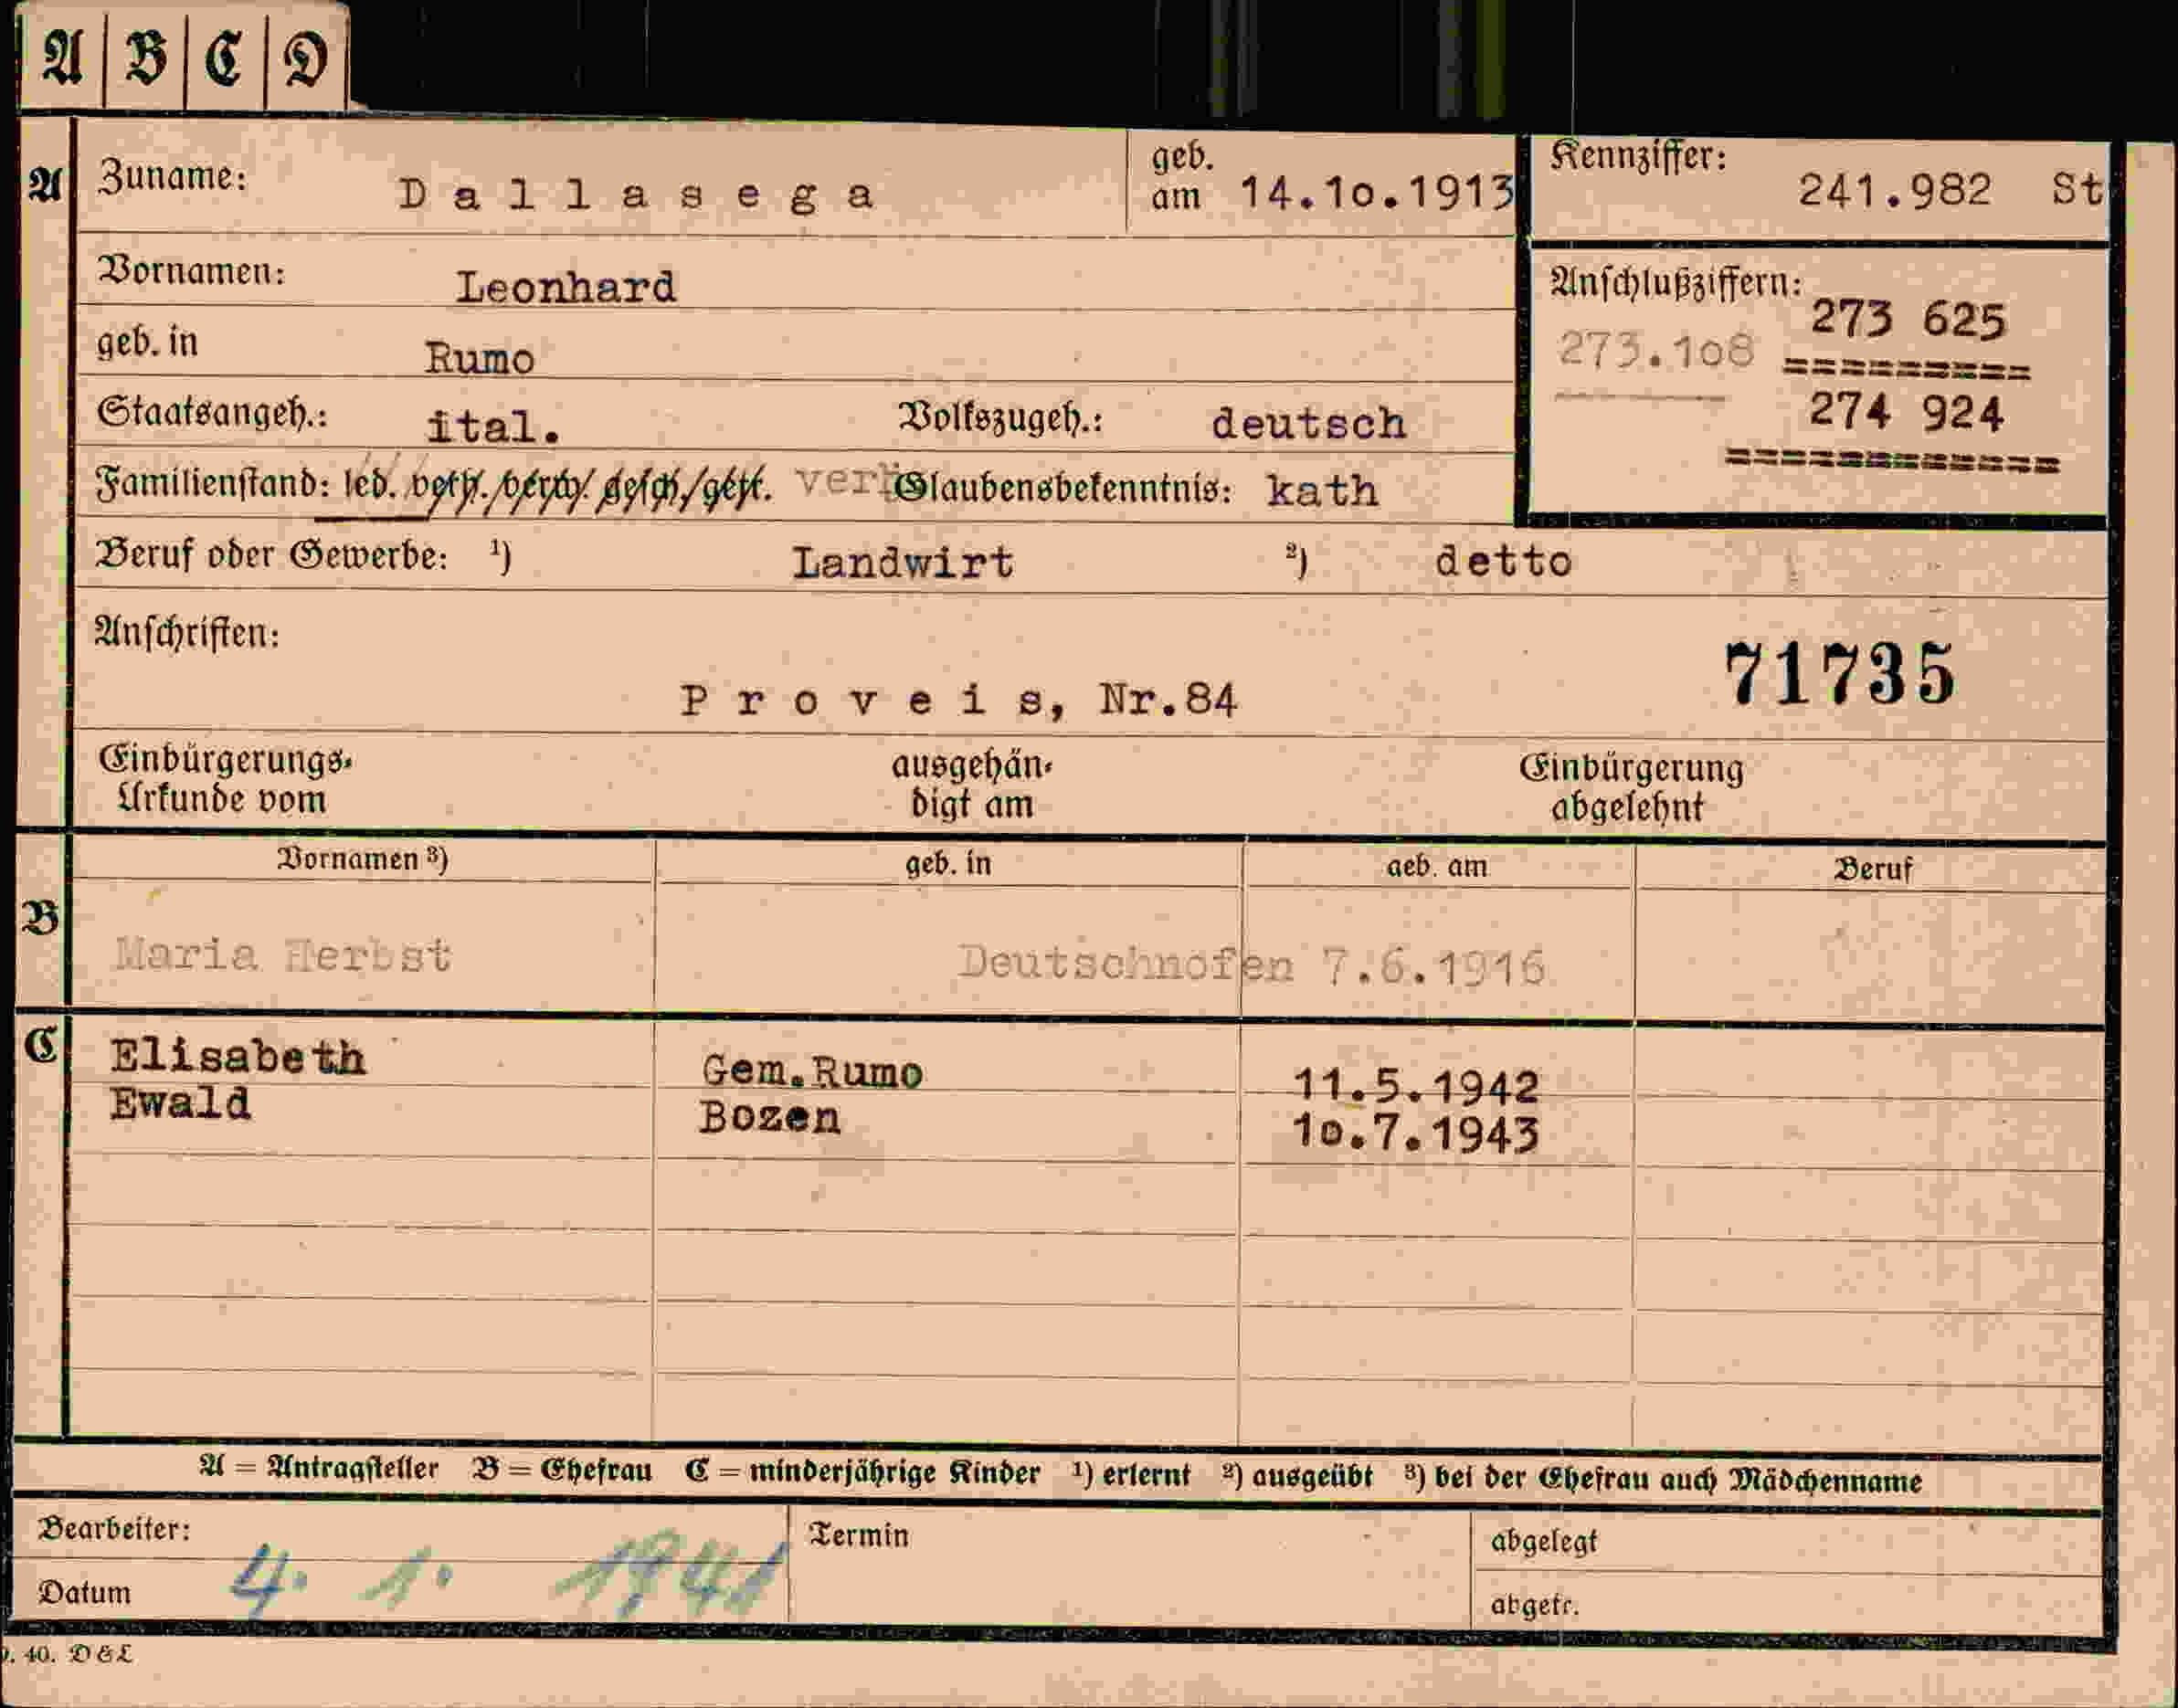 A B C D
A Zuname: Dallasega geb. am 14.10.1913 Kennziffer: 241.982 St
Vornamen: Leonhard
Anschlußziffern: 273 625
geb. in Rumo 273.108
Staatsangeh.: ital. Volkszugeh.: deutsch 274 924
Familienstand: led. verh. verw. gesch. getr. verh Glaubensbekenntnis: kath
Beruf oder Gewerbe: ¹) Landwirt ²) detto
Anschriften:
Proveis, Nr.84 71735
Einbürgerungs- ausgehän- Einbürgerung
Urkunde vom digt am abgelehnt
Vornamen ³) geb. in geb. am Beruf
B
Maria Herbst Deutschnofen 7.6.1916
C Elisabeth Gem.Rumo 11.5.1942
Ewald Bozen 10.7.1943
A = Antragsteller B = Ehefrau C = minderjährige Kinder ¹) erlernt ²) ausgeübt ³) bei der Ehefrau auch Mädchenname
Bearbeiter: Termin abgelegt
Datum 4. 1. 1941 abgefr.
40. D & L